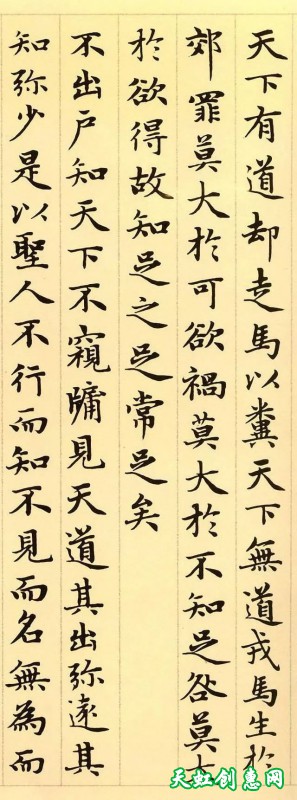 天下有道却走馬以糞天下無道戎馬生於
郊罪莫大於可欲禍莫大於不知足咎莫大
於欲得故知足之足常足矣
不出户知天下不窺牖見天道其出弥遠其
知弥少是以聖人不行而知不見而名無為而
天虹创惠网